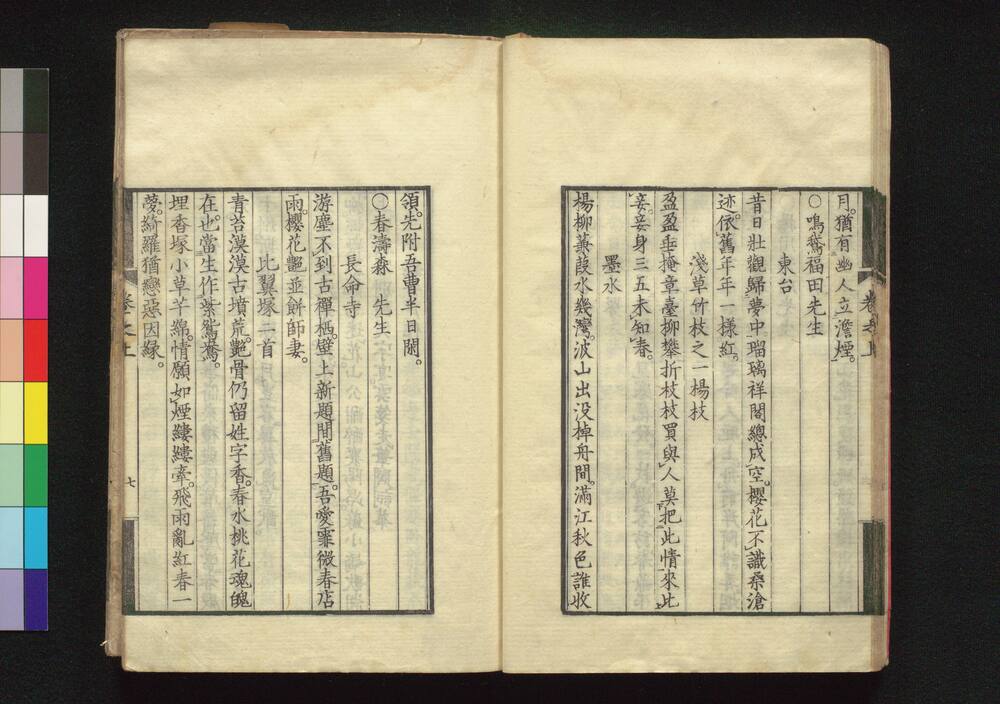 月。猶有幽人立澹煙。
〇鳴鵞福田先生
東台
昔日壯觀歸夢中瑠璃祥閣總成空。櫻花不識桑滄
迹。依舊年年一樣紅。
淺草竹枝之一楊枝
盈盈垂掩章臺柳攀折枝枝買與人莫把此情來此
妾。妾身三五未知春。
墨水
楊柳蒹葭水幾灣。波山出没棹舟間。滿江秋色誰收
領。先附吾曹半日閑。
〇春濤森 先生
長命寺
游塵不到古禪栖。壁上新題間舊題。吾愛霏微春店
雨。櫻花艷並餅師妻。
比翼塚二首
青苔漠漠古墳荒。艷骨仍留姓字香。春水桃花魂魄
在。也當生作紫鴛鴦。
埋香塚小草芊綿。情願如煙縷縷牽。飛雨亂紅春一
夢。綺羅猶戀惡因緣。
七